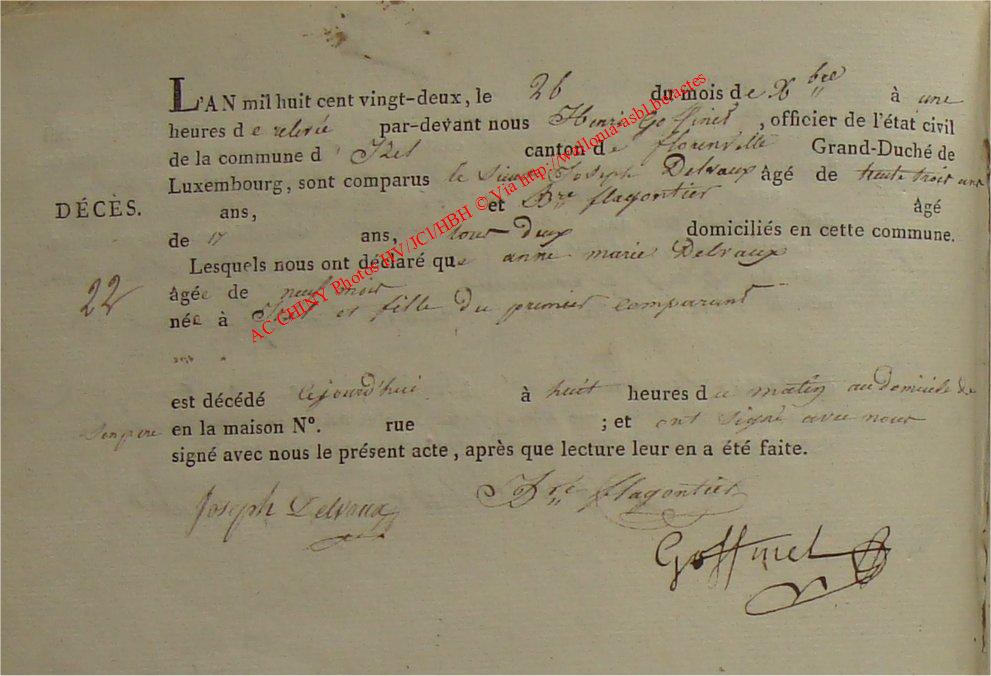 L'AN mil huit cent vingt-deux, le 26 du mois de Xbre à une
heures de relevée par-devant nous Henri Goffinet, officier de l'état civil
de la commune d'Izel canton de florenville Grand-Duché de
Luxembourg, sont comparus le Sieur Joseph Delvaux âgé de trente trois ans
DÉCÈS. ans, et Bre flagontier âgé
de ans, tous deux domiciliés en cette commune.
Lesquels nous ont déclaré que anne marie Delvaux
22 âgée de neuf mois
née à Izel et fille du premier comparant
est décédé cejourd'hui à huit heures du matin au domicile de
son pere en la maison N°. rue ; et ont signé avec nous
signé avec nous le présent acte, après que lecture leur en a été faite.
Joseph Delvaux Bre flagontier
Goffinet
AC CHINY Photos HV/JCI/HBH © Via http://wallonia-asbl.be/actes